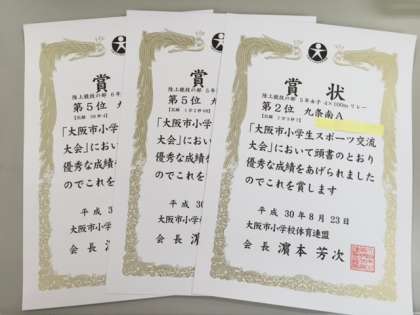 賞
陸上競技の部 6年
第5位 九
「大阪市小学
大会」におい
優秀な成績を
のでこれを賞
平成 3
大阪市小学
会長 濱
賞
陸上競技の部 5年
第5位 九
「大阪市小学
大会」におい
優秀な成績を
のでこれを賞
平成 3
大阪市小学
会長 濱
賞状
陸上競技の部 5年女子 4×100m リレー
第2位 九条南A
「大阪市小学生スポーツ交流
大会」において頭書のとおり
優秀な成績をあげられました
のでこれを賞します
平成 30年8月23日
大阪市小学校体育連盟
会長 濱本芳次